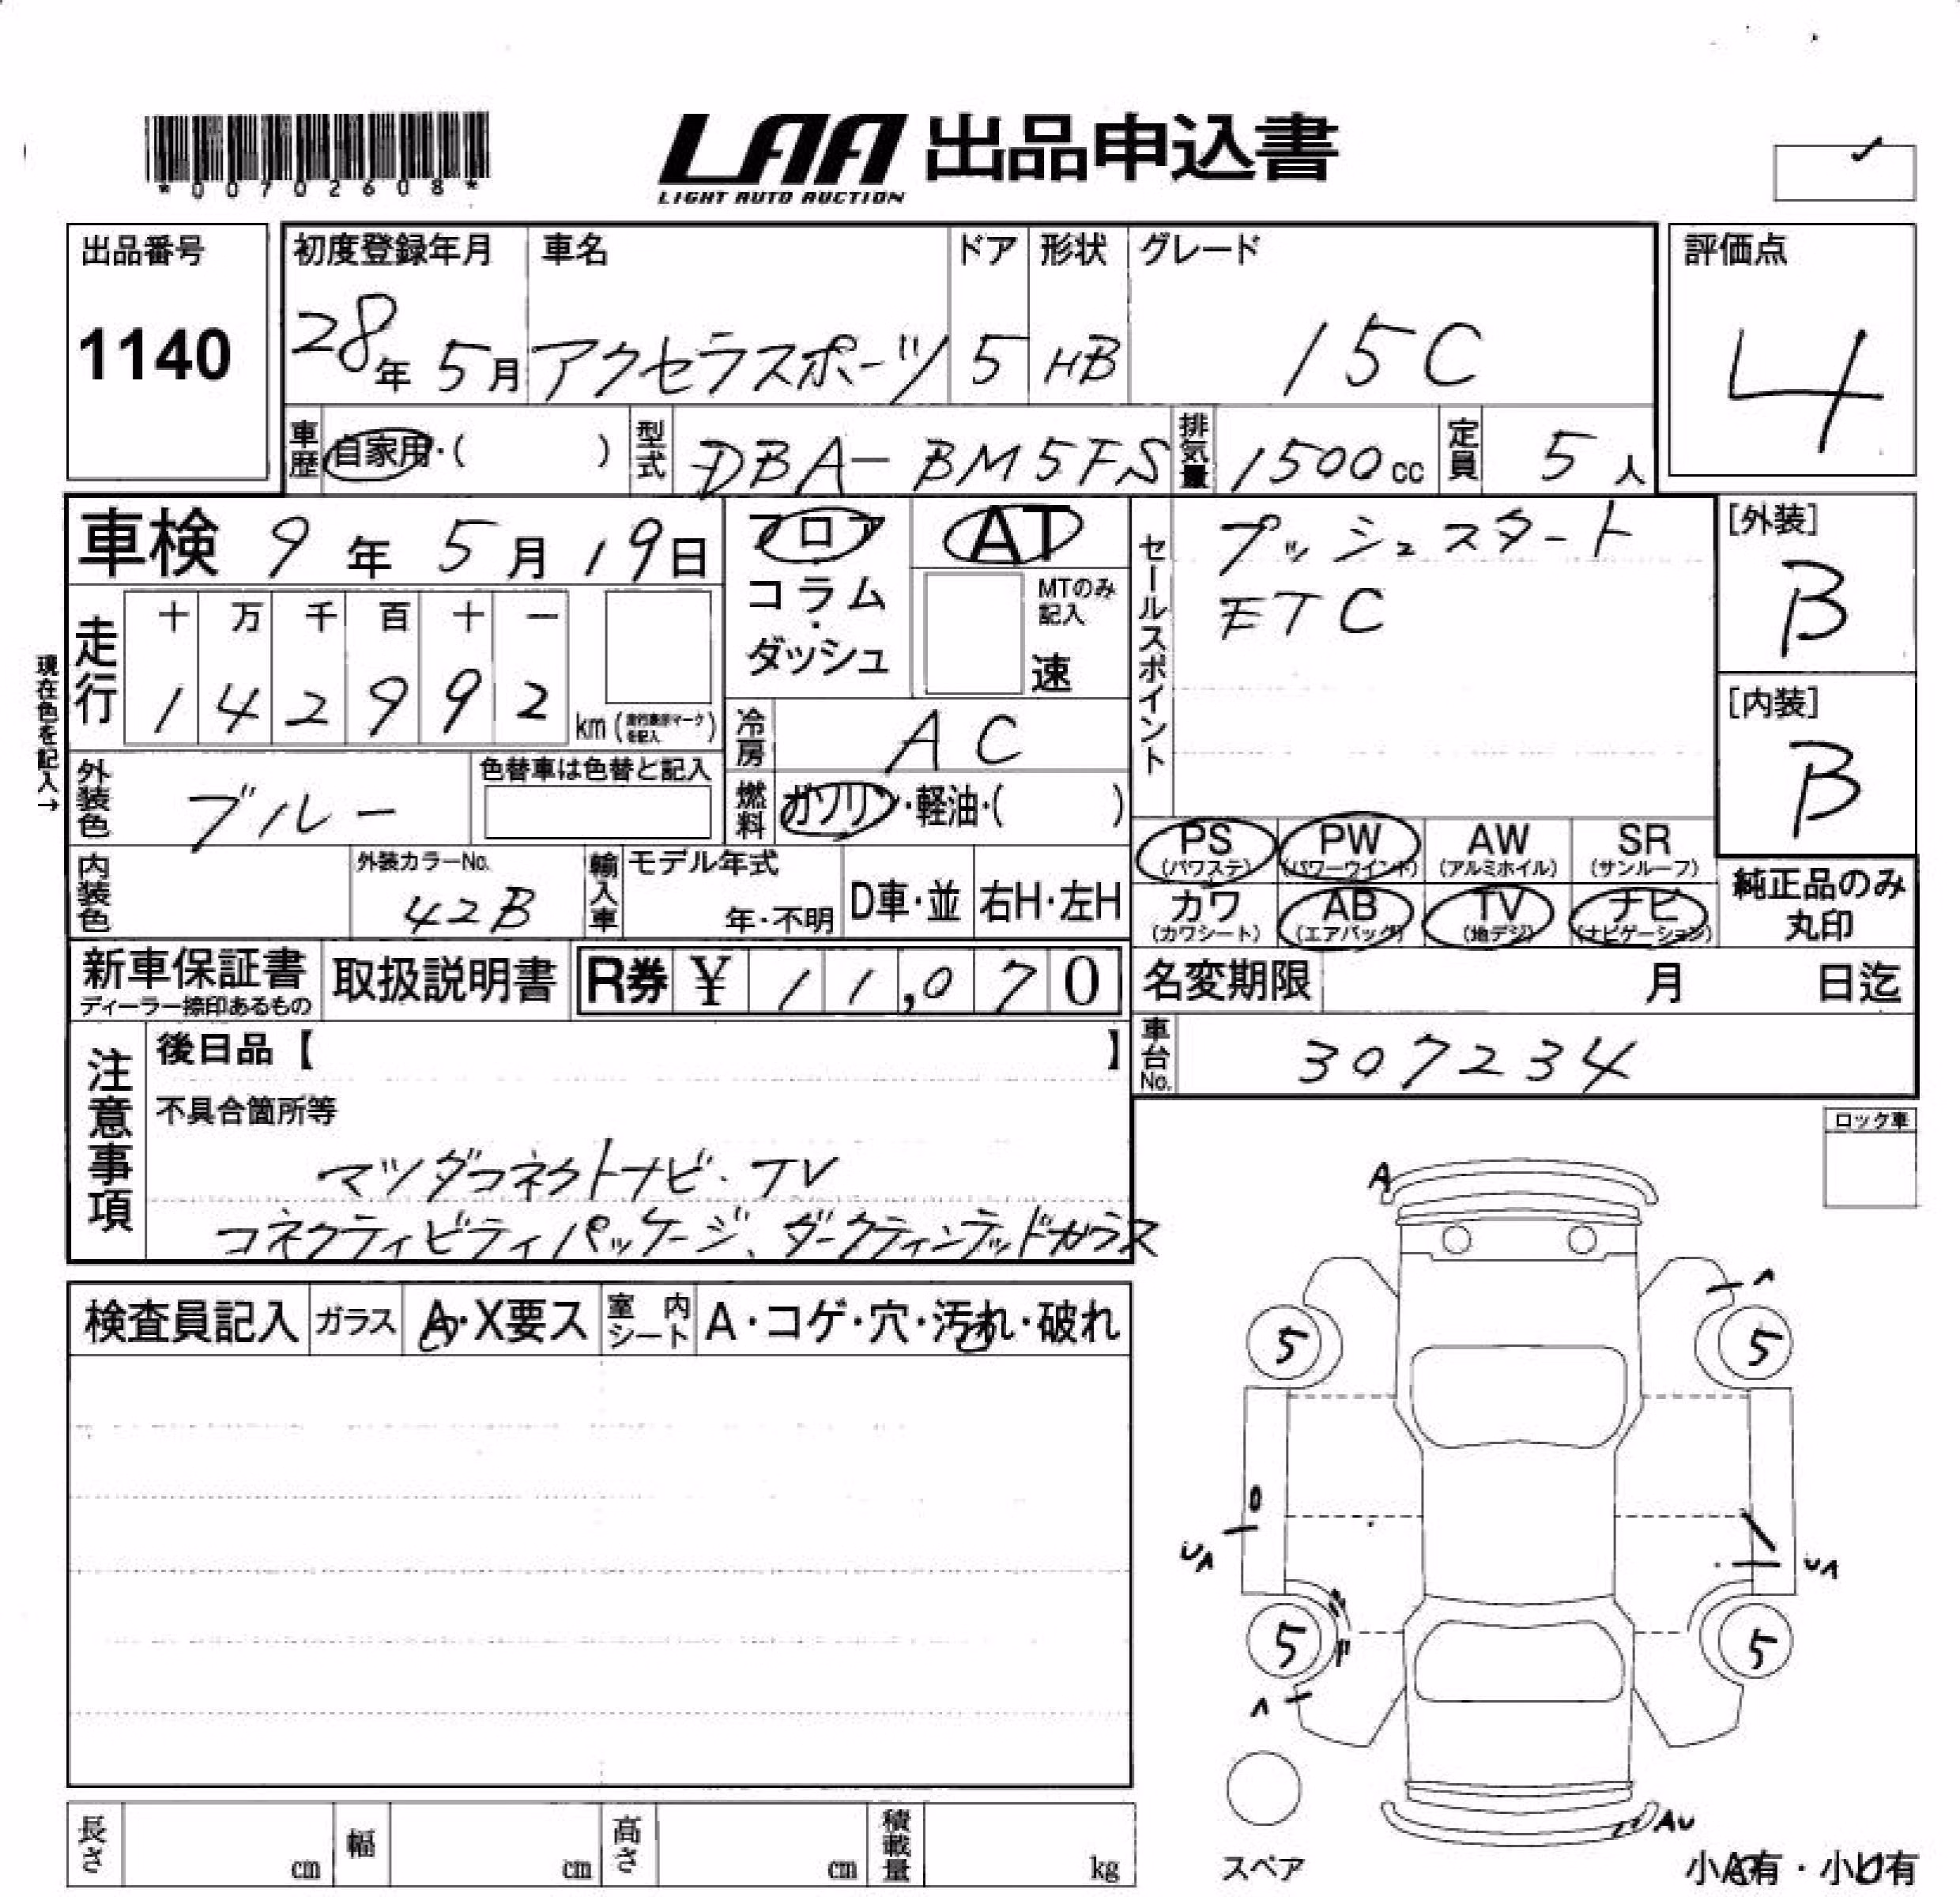 *00702608*
LAA 出品申込書
LIGHT AUTO AUCTION
出品番号
1140
初度登録年月
28年 5月
車名
アクセラスポーツ
ドア
5
形状
HB
グレード
15C
評価点
4
車歴
自家用・( )
型式
DBA-BM5FS
排気量
1500cc
定員
5人
車検 9年 5月 19日
現在色を記入→
走行
十 万 千 百 十 一
1 4 2 9 9 2
km
フロア
コラム・
ダッシュ
AT
MTのみ
記入
速
冷房
AC
セールスポイント
プッシュスタート
ETC
[外装]
B
[内装]
B
外装色
ブルー
色替車は色替と記入
燃料
ガソリン・軽油・( )
内装色
外装カラーNo.
42B
輸入車
モデル年式
年・不明
D車・並
右H・左H
PS
(パワステ)
PW
(パワーウインド)
AW
(アルミホイル)
SR
(サンルーフ)
カワ
(カワシート)
AB
(エアバッグ)
TV
(地デジ)
ナビ
(ナビゲーション)
純正品のみ
丸印
新車保証書
ディーラー捺印あるもの
取扱説明書
R券 ¥ 11,070
名変期限 月 日迄
車台No.
307234
注意事項
後日品【 】
不具合箇所等
マツダコネクトナビ・TV
コネクティビティパッケージ、ダークティンテッドガラス
ロック車
検査員記入
ガラス
A・X要ス
室内
シート
A・コゲ・穴・汚れ・破れ
A
A
5
5
U
UA
UA
5
5
A
AU
スペア
小A有・小U有
長さ cm
幅 cm
高さ cm
積載量 kg